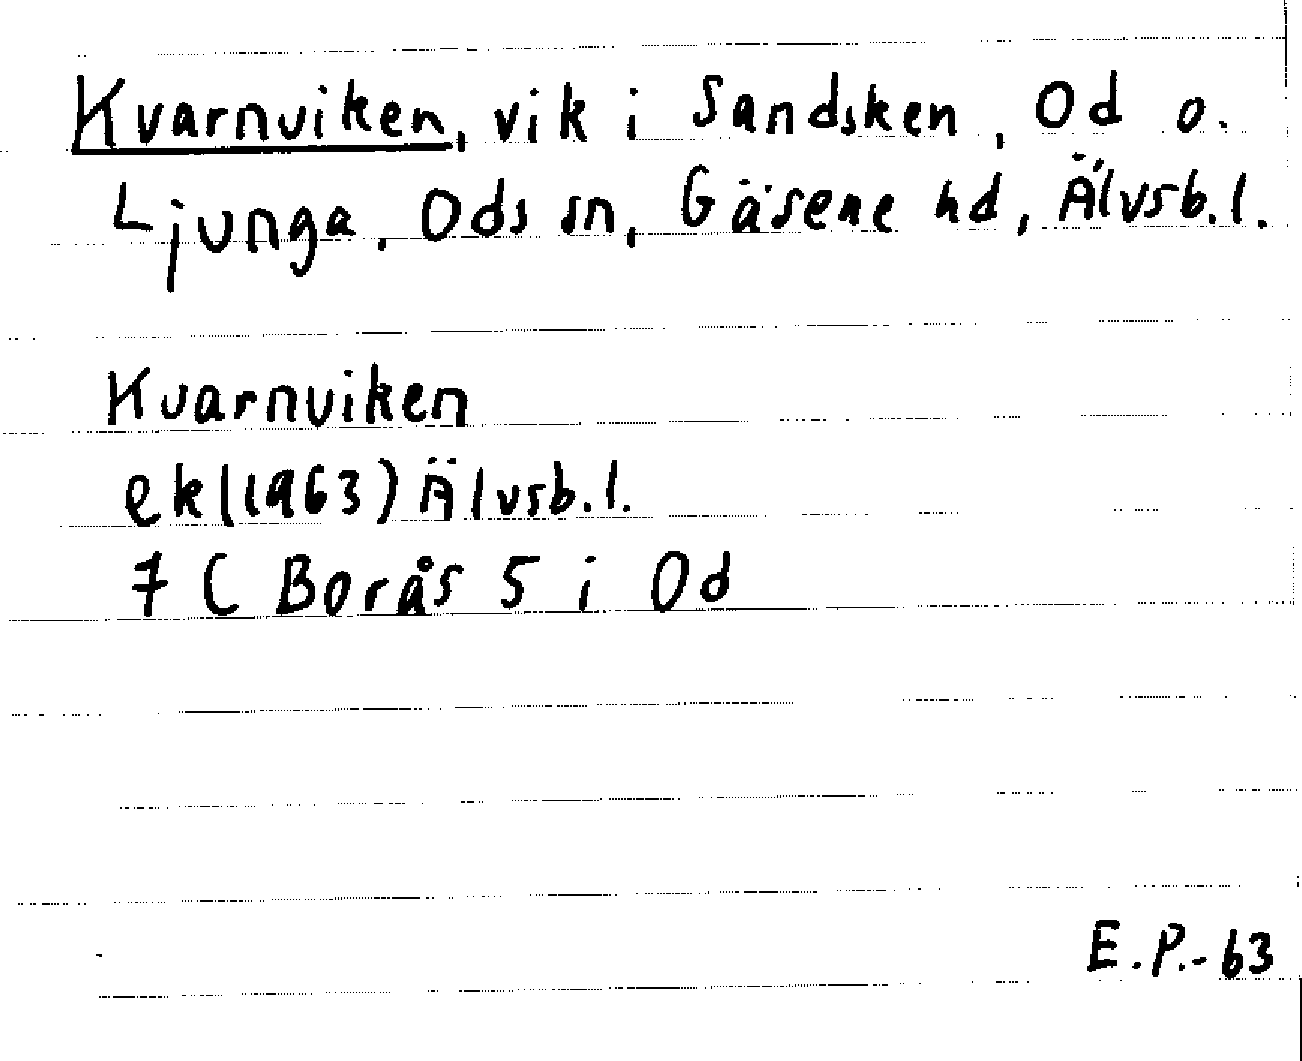 Kvarnviken, vik i Sandsken, Od o.
Ljunga, Ods sn, Gäsene hd, Älvsb.l.
Kvarnviken
ek(1963) Älvsb.l.
7 C Borås 5 i Od
E.P.-63